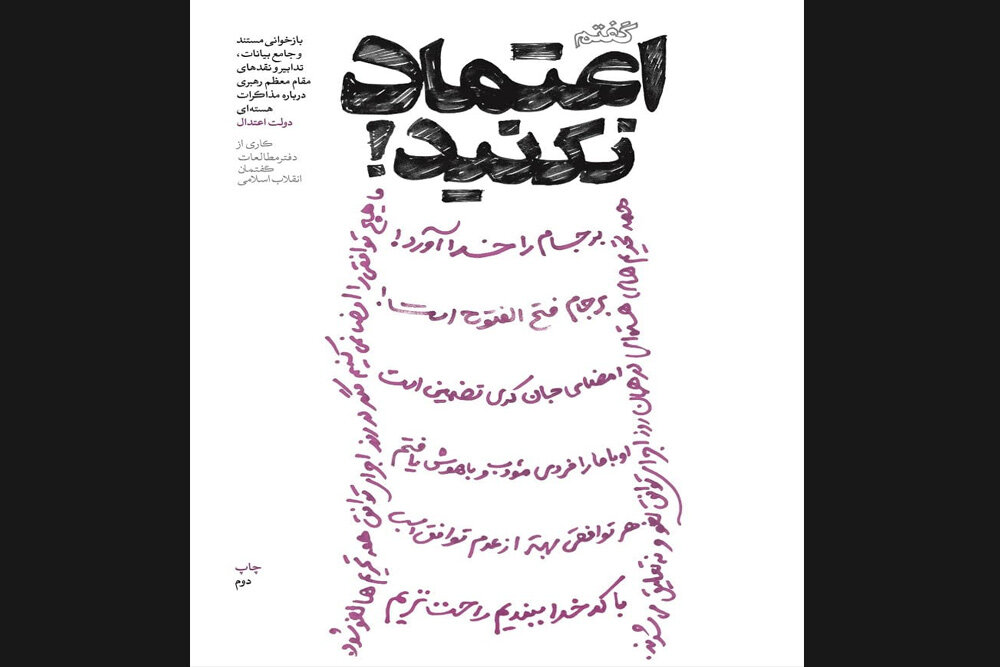 گفتم
اعتماد
نکنید!
بازخوانی مستند
و جامع بیانات،
تدابیر و نقدهای
مقام معظم رهبری
درباره مذاکرات
هسته‌ای
دولت اعتدال
کاری از
دفتر مطالعات
گفتمان
انقلاب اسلامی
همه تحریم های هسته‌ای در همان روز اجرای توافق لغو و نه تعلیق می‌شوند.
برجام را خدا آورد!
برجام فتح الفتوح است!
امضای جان کری تضمین است
اوباما را فردی مؤدب و باهوش یافتم
هر توافقی بهتر از عدم توافق است
با کدخدا ببندیم راحت‌تریم
ما هیچ توافقی را امضا نمی‌کنیم مگر در روز اجرای توافق همه تحریم ها لغو شود
چاپ
دوم